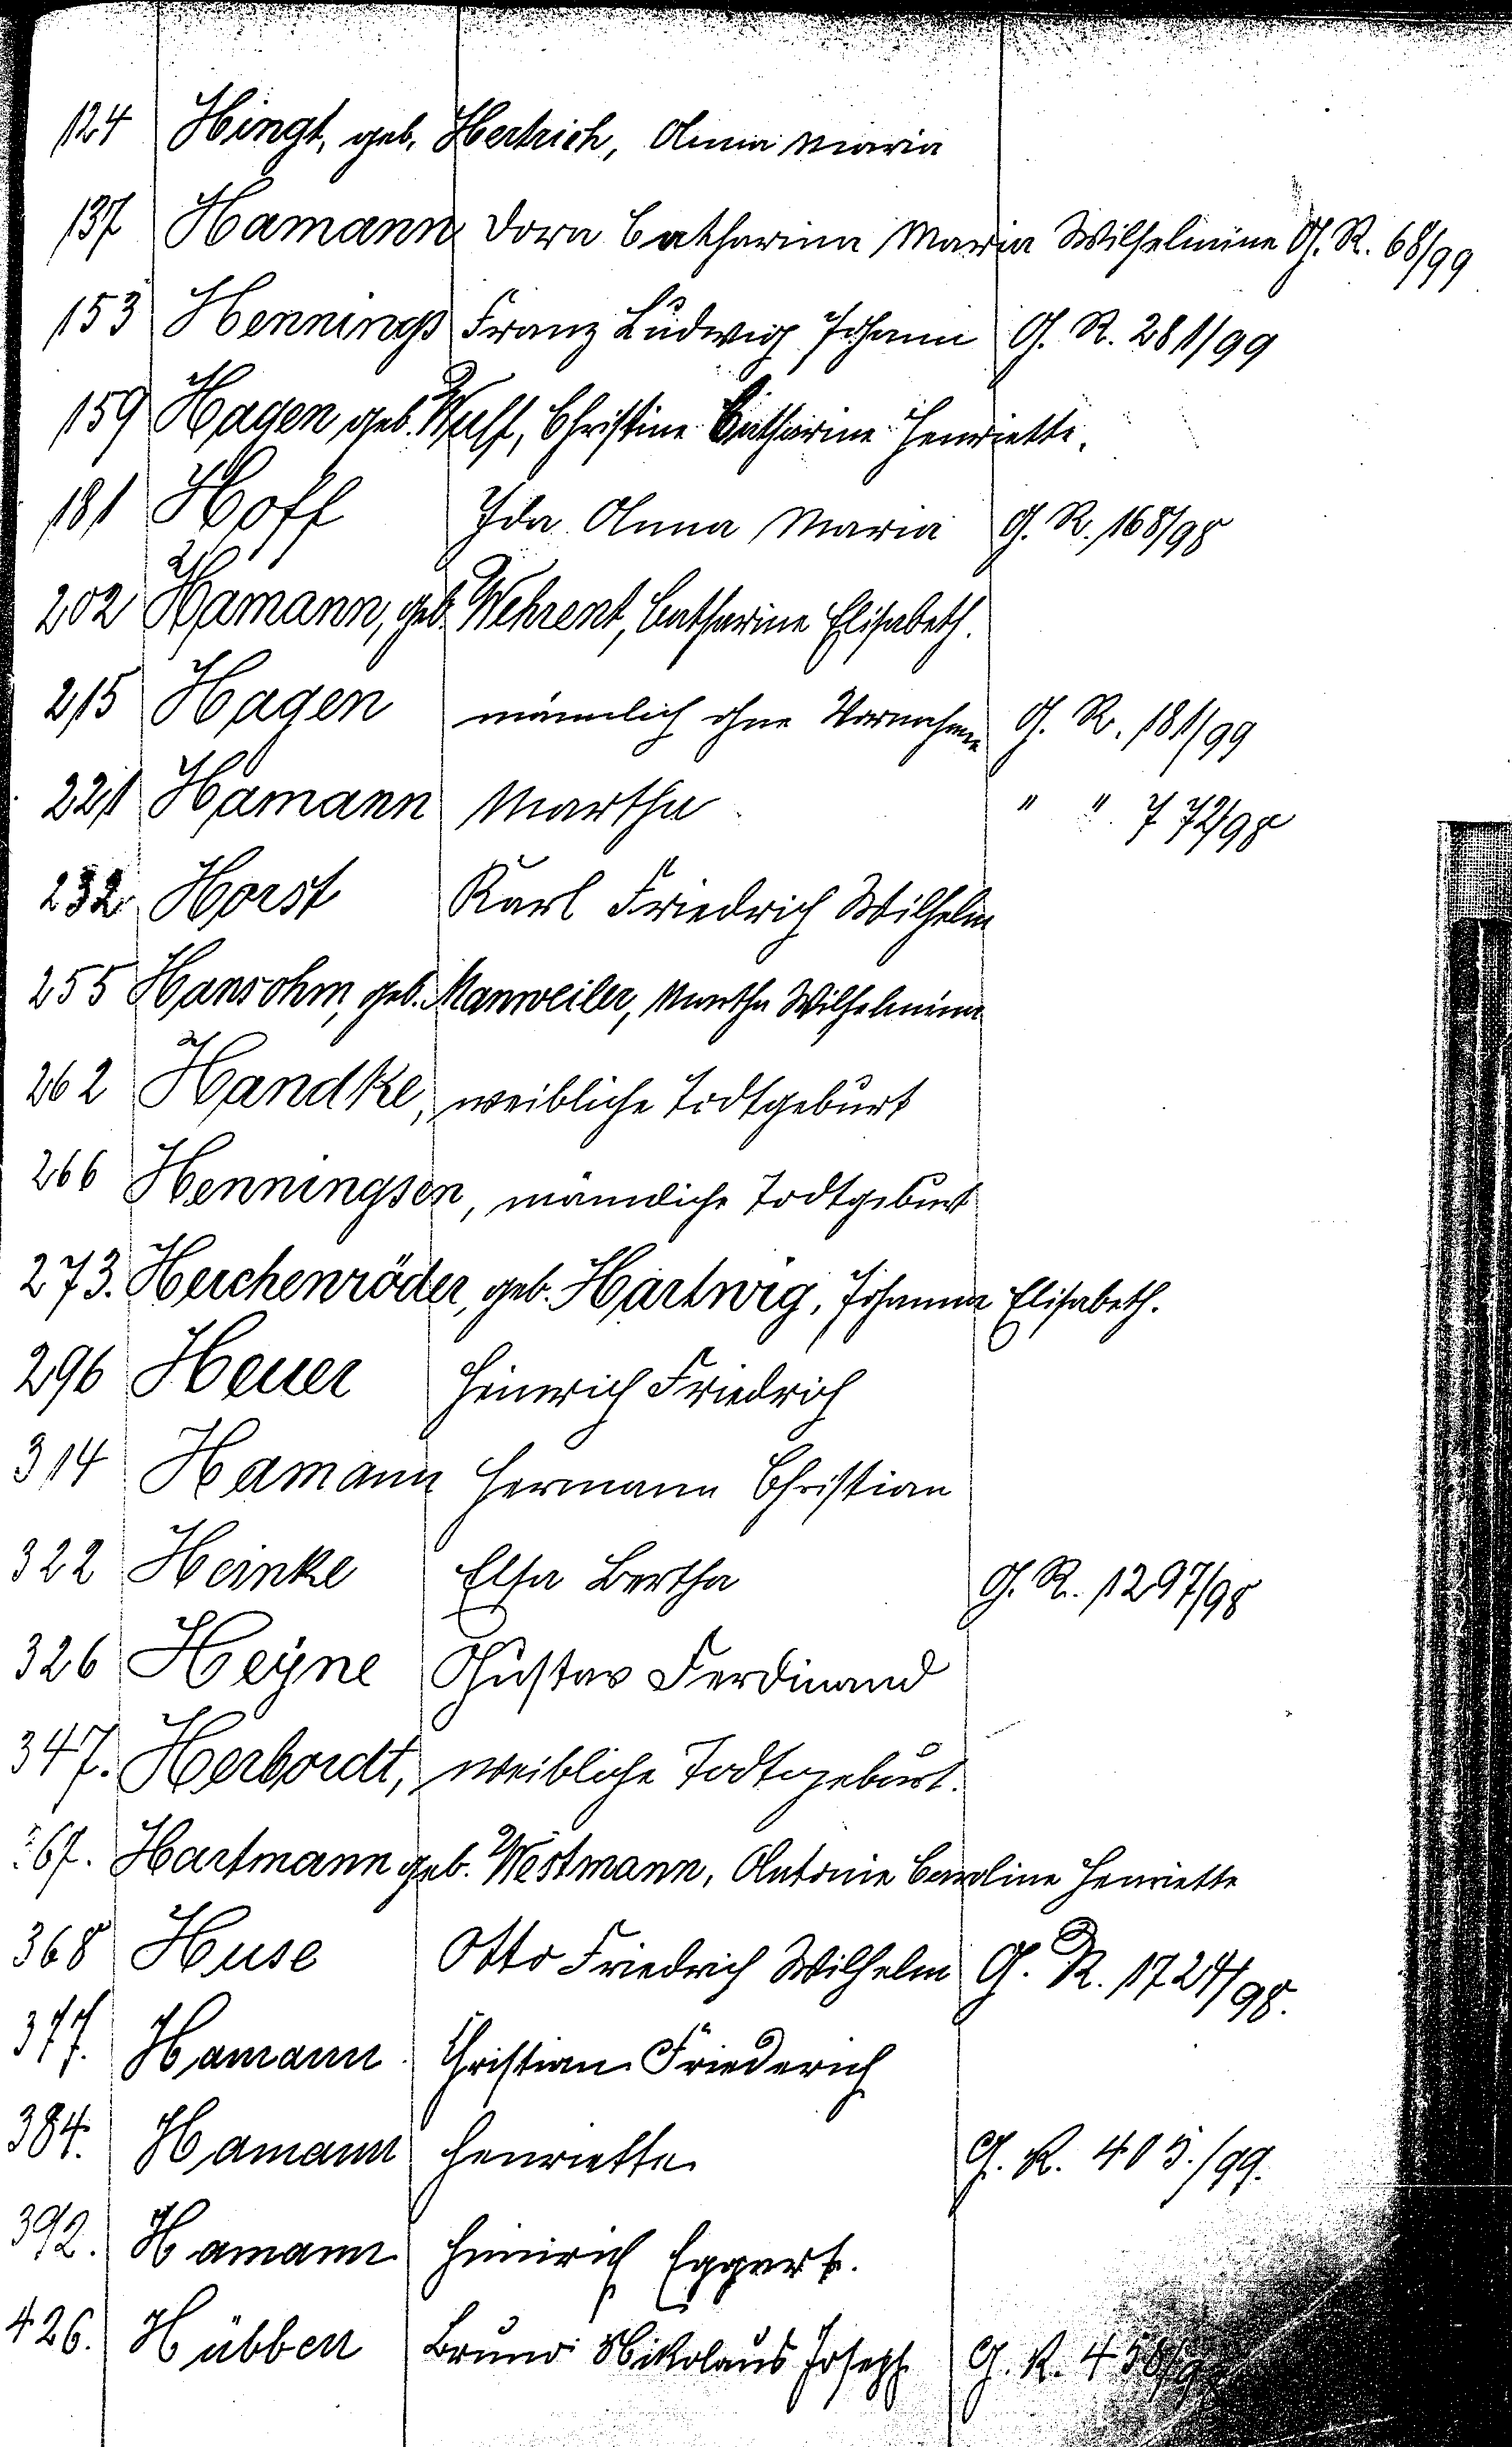 124 Hingt, geb. Hertrich, Anna Maria
137 Hamann Dora Catharina Maria Wilhelmine G. R. 68/99
153 Hennings Franz Ludwig Johann G. R. 281/99
159 Hagen geb. Wulff, Christine Catharine Henriette.
181 Hoff Ida Anna Maria G. R. 168/98
202 Hamann, geb. Wehrent, Catharine Elisabeth.
215 Hagen männlich ohne Vornahme G. R. 181/99
221 Hamann Martha " " 772/98
232 Horst Karl Friedrich Wilhelm
255 Hansohm, geb. Manweiler, Martha Wilhelmine
262 Handke, weibliche Todtgeburt
266 Henningsen, männliche Todtgeburt
273. Herchenröder, geb. Hartwig, Johanna Elisabeth.
296 Heuer Hinrich Friedrich
314 Hamann Hermann Christian
322 Heinke Elsa Bertha G. R. 1297/98
326 Heyne Gustav Ferdinand
347. Herbordt, weibliche Todtgeburt.
367. Hartmann geb. Westmann, Antonie Caroline Henriette
368 Huse Otto Friedrich Wilhelm G. R. 1724/98.
377. Hamann Christian Friederich
384. Hamann Henriette G. R. 405./99.
392. Hamann Hinrich Eggert.
426. Hübben Bruno Nikolaus Joseph G. R.